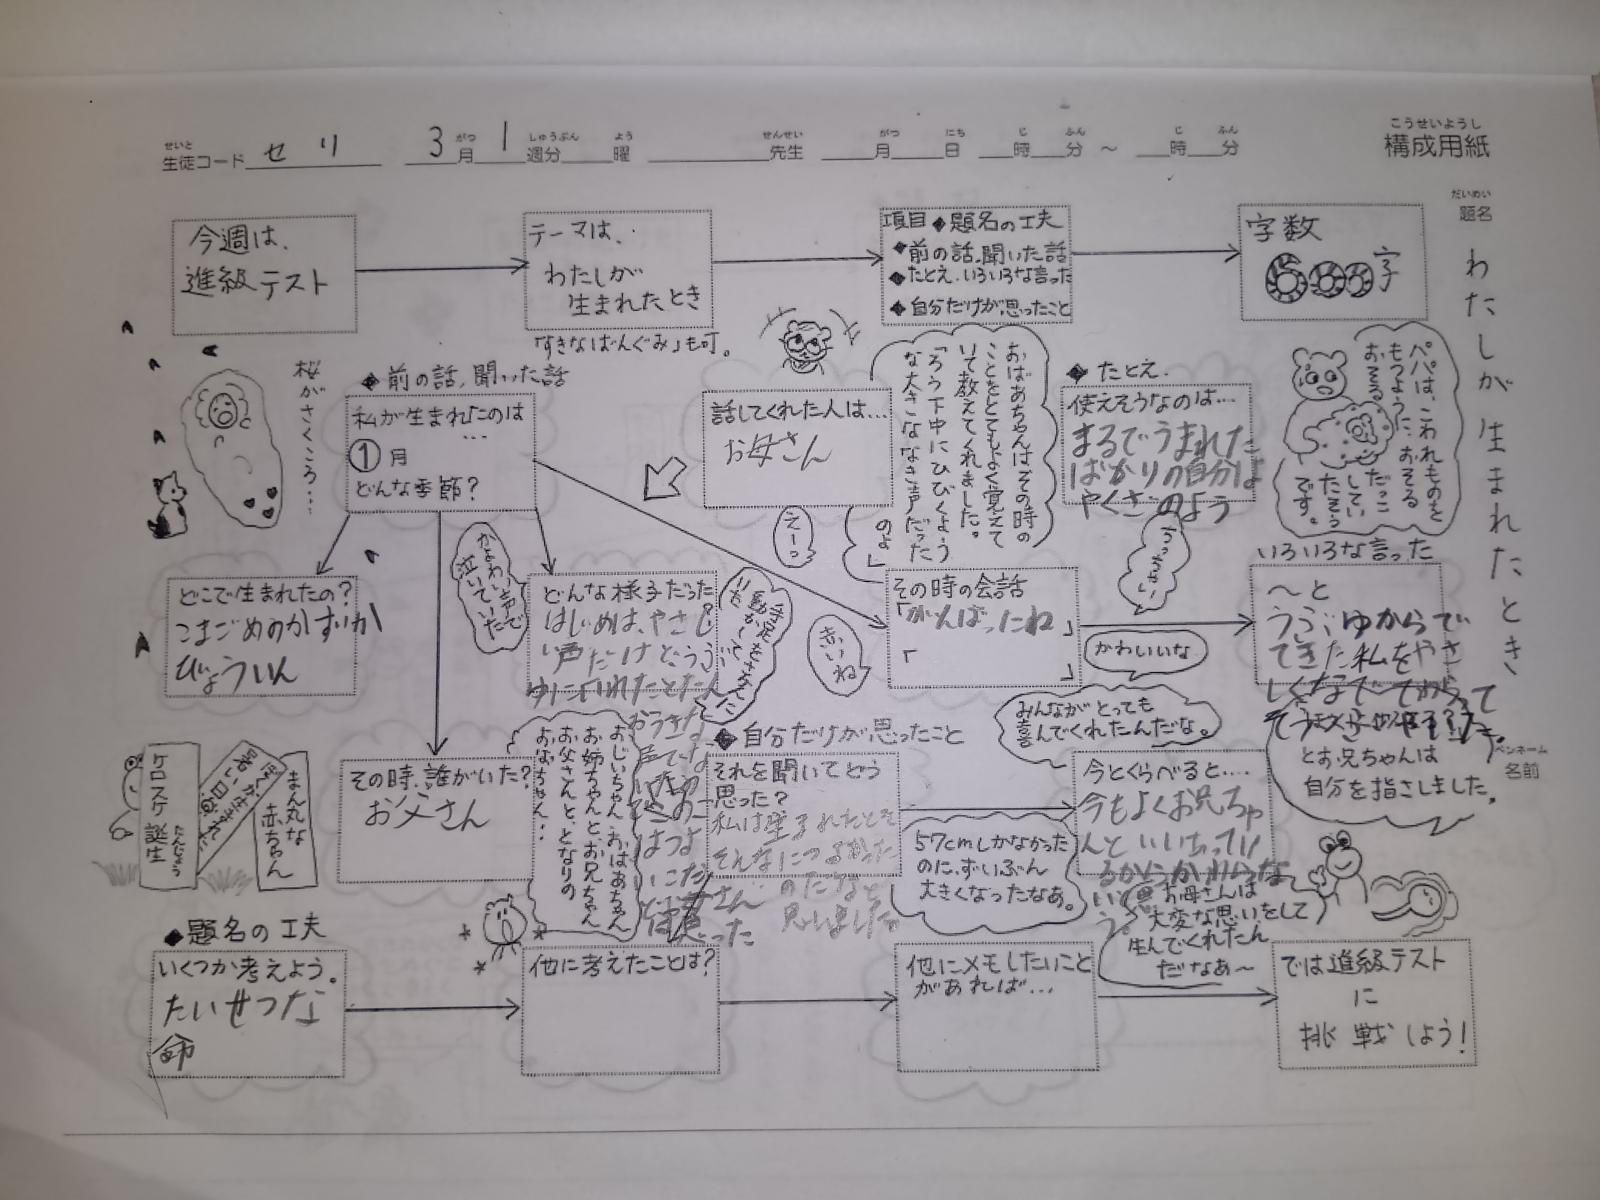 せいと
生徒コード セリ
3 がつ 月 1 しゅうぶん 週分 よう 曜
せんせい 先生
がつ 月 にち 日 じ 時 ふん 分 ～ じ 時 ふん 分
こうせいようし
構成用紙
だいめい
題名
わたしが生まれたとき
今週は、
進級テスト
テーマは、
わたしが
生まれたとき
「すきなばんぐみ」も可。
項目◆題名の工夫
◆前の話、聞いた話
◆たとえ、いろいろな言った
◆自分だけが思ったこと
字数
600字
桜がさくころ…
◆前の話、聞いた話
私が生まれたのは
…
①月
どんな季節？
話してくれた人は…
お母さん
おばあちゃんはその時の
ことをとてもよく覚えて
いて教えてくれました。
「ろう下中にひびくよう
な大きななき声だった
のよ」
◆たとえ.
使えそうなのは…
まるでうまれた
ばかりの自分は
やくざのよう
パパは、これわれものを
もつように、おそる
おそる だっこ
してい
たそう
です。
どこで生まれたの？
こまごめのかずいか
びょういん
かよわい声で
泣いていた
どんな様子だった？
はじめは、やさし
い声だけどうぶ
ゆにいれたとたん
手足をさかんに
動かして
えーっ
赤いね
その時の会話
「がんばったね
」
「
」
うっちゃい
かわいいな
いろいろな言った
～と
うぶゆからで
てきた私をやさ
しくなでてから
とお兄ちゃんは
自分を指さしました。
ペンネーム
名前
みんながとっても
喜んでくれたんだな。
ケロスケ誕生
たんじょう
まん丸な
赤ちゃん
その時、誰がいた？
お父さん
おじいちゃん、おばあちゃん
お姉ちゃんとお兄ちゃん
お父さんと、となりの
おばちゃん…
◆自分だけが思ったこと
それを聞いてどう
思った？
私は生まれたとき
そんなにつよかった
のだなと
思いました
57cmしかなかった
のに、ずいぶん
大きくなったなあ。
今とくらべると….
今もよくお兄ちゃ
んといいあってい
るからかわらな
い
お母さんは
大変な思いをして
生んでくれたん
だなあ～
◆題名の工夫
いくつか考えよう。
たいせつな
命
他に考えたことは？
他にメモしたいこと
があれば…
では進級テスト
に
挑戦しよう！